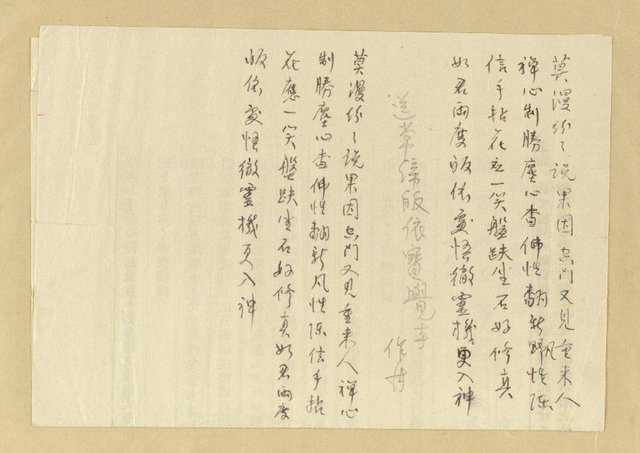 莫漫紛々說果因空門又見重來人
禪心制勝塵心杳佛性翻新野性陳
風
信手拈花应一笑盤趺坐石好修真
如君兩度皈依處悟徹靈機更入神
送 皈依寶覺寺
作舟
莫漫紛々說果因空門又見重來人禪心
制勝塵心杳佛性翻新凡性陳信手拈
花應一笑盤趺坐石好修真如君兩度
皈依處悟徹靈機更入神